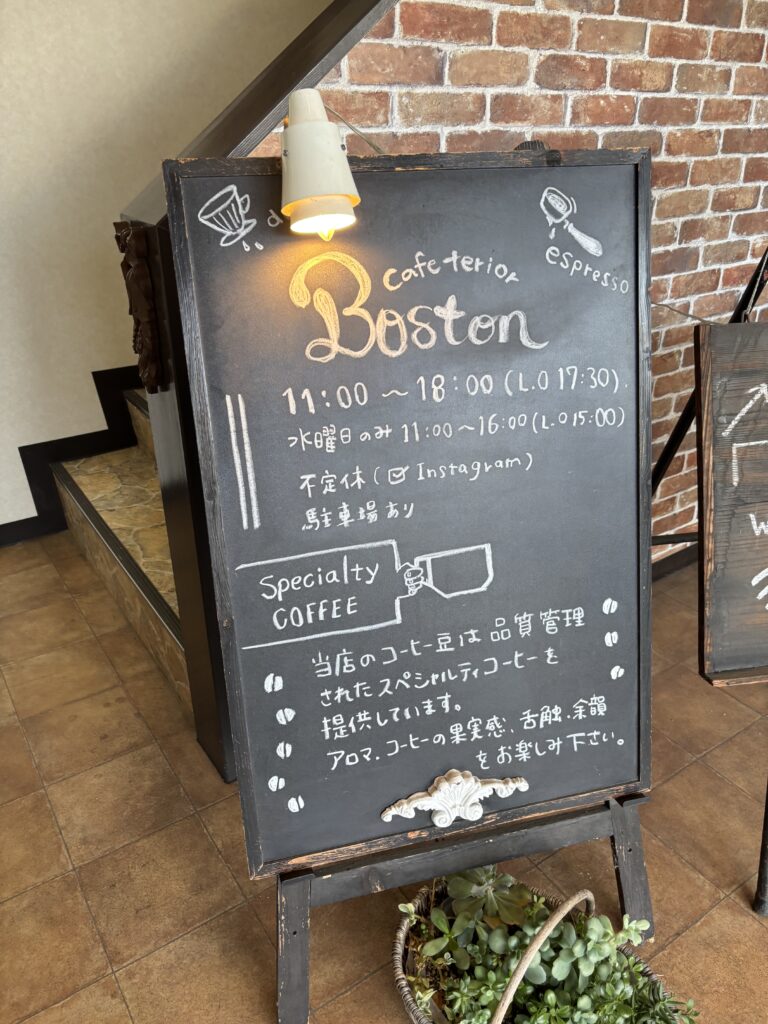 espresso
cafe terior
Boston
11:00 ～ 18:00 (L.O 17:30).
水曜日のみ 11:00～16:00 (L.O 15:00)
不定休 (☑ Instagram)
駐車場あり
Specialty
COFFEE
当店のコーヒー豆は品質管理
されたスペシャルティコーヒーを
提供しています。
アロマ、コーヒーの果実感、舌触、余韻
をお楽しみ下さい。